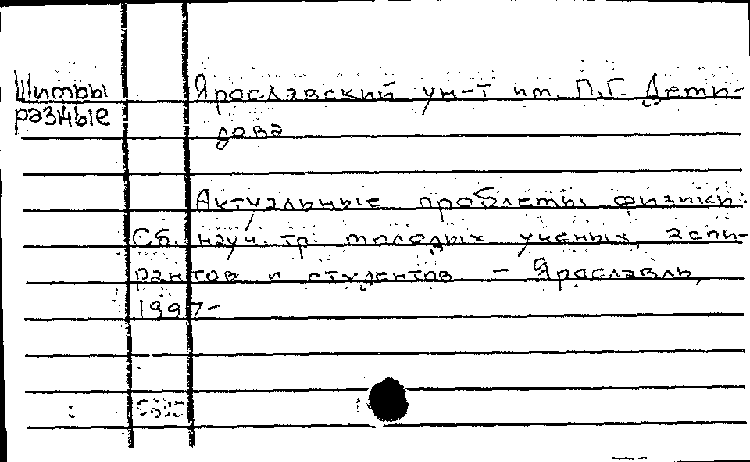 Шифры
разные
Ярославский ун-т им. П.Г. Деми-
дова
Актуальные проблемы физики:
Сб. науч. тр. молодых ученых, аспи-
рантов и студентов - Ярославль,
1997-